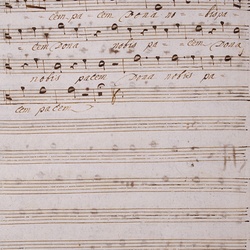 cem, pa cem Dona no bis pa
cem Dona nobis pa cem Dona
nobis pacem Dona nobis pa
cem pacem.